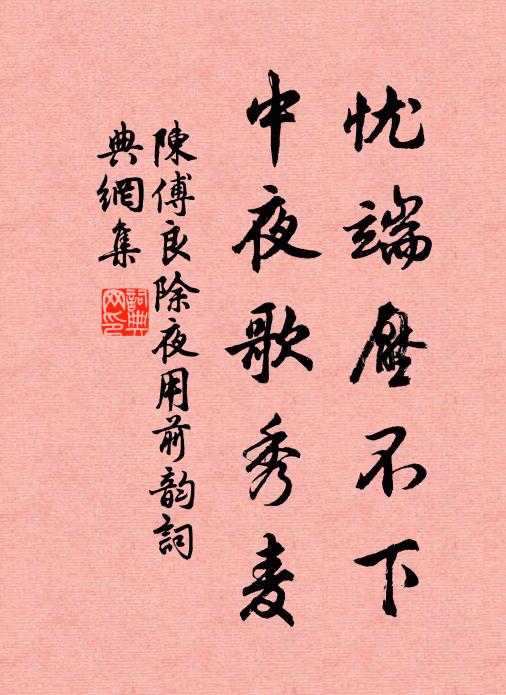 忧端压不下
中夜歌秀麦
陳傅良除夜用前韵詞
典網集
詞典网印